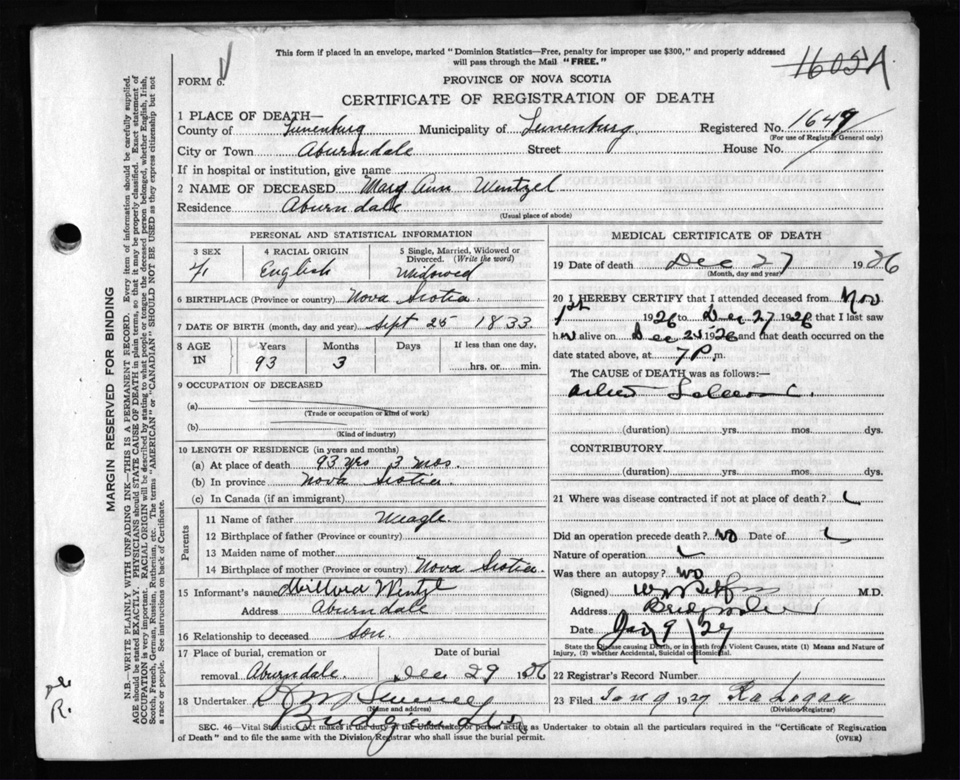 This form if placed in an envelope, marked "Dominion Statistics—Free, penalty for improper use $300," and properly addressed
will pass through the Mail "FREE."
1605A
FORM 6.
PROVINCE OF NOVA SCOTIA
CERTIFICATE OF REGISTRATION OF DEATH
1 PLACE OF DEATH—
County of Lunenburg Municipality of Lunenburg Registered No. 1649
(For use of Registrar General only)
City or Town Aburndale Street House No.
If in hospital or institution, give name
2 NAME OF DECEASED Mary Ann Wentzel
Residence Aburndale
(Usual place of abode)
PERSONAL AND STATISTICAL INFORMATION
3 SEX 4 RACIAL ORIGIN 5 Single, Married, Widowed or Divorced. (Write the word)
English Widowed
6 BIRTHPLACE (Province or country) Nova Scotia
7 DATE OF BIRTH (month, day and year) Sept 25 1833
8 AGE IN Years Months Days If less than one day,
93 3 hrs. or min.
9 OCCUPATION OF DECEASED
(a)
(Trade or occupation or kind of work)
(b)
(Kind of industry)
10 LENGTH OF RESIDENCE (in years and months)
(a) At place of death 93 yrs 3 mos.
(b) In province Nova Scotia
(c) In Canada (if an immigrant)
Parents
11 Name of father Meagle
12 Birthplace of father (Province or country)
13 Maiden name of mother
14 Birthplace of mother (Province or country) Nova Scotia
15 Informant's name Wentzl
Address Aburndale
16 Relationship to deceased Son
17 Place of burial, cremation or Date of burial
removal Aburndale Dec 29 1926
18 Undertaker
(Name and address)
MEDICAL CERTIFICATE OF DEATH
19 Date of death Dec 27 1926
(Month, day and year)
20 I HEREBY CERTIFY that I attended deceased from Nov
1st 1926 to Dec 27 1926 that I last saw
h alive on Dec 1926 and that death occurred on the
date stated above, at 7 P. m.
The CAUSE of DEATH was as follows:—
(duration) yrs. mos. dys.
CONTRIBUTORY
(duration) yrs. mos. dys.
21 Where was disease contracted if not at place of death?
Did an operation precede death? No Date of
Nature of operation
Was there an autopsy? No
(Signed) M.D.
Address
Date Jan 9/27
State the Disease causing Death, or in death from Violent Causes, state (1) Means and Nature of
Injury, (2) whether Accidental, Suicidal or Homicidal.
22 Registrar's Record Number
23 Filed 1927
(Division Registrar)
SEC. 46—Vital Statistics Act makes it the duty of Undertaker or person acting as Undertaker to obtain all the particulars required in the "Certificate of Registration
of Death" and to file the same with the Division Registrar who shall issue the burial permit. (OVER)
MARGIN RESERVED FOR BINDING
N.B.—WRITE PLAINLY WITH UNFADING INK—THIS IS A PERMANENT RECORD. Every item of information should be carefully supplied.
AGE should be stated EXACTLY. PHYSICIANS should STATE CAUSE OF DEATH in plain terms, so that it may be properly classified. Exact statement of
OCCUPATION is very important. RACIAL ORIGIN will be described by stating to what people or tongue the deceased person belonged, whether English, Irish,
Scotch, French, German, Russian, Ruthenian, etc. The terms "AMERICAN" or "CANADIAN" SHOULD NOT BE USED as they express citizenship but not
a race or people. See instructions on back of Certificate.